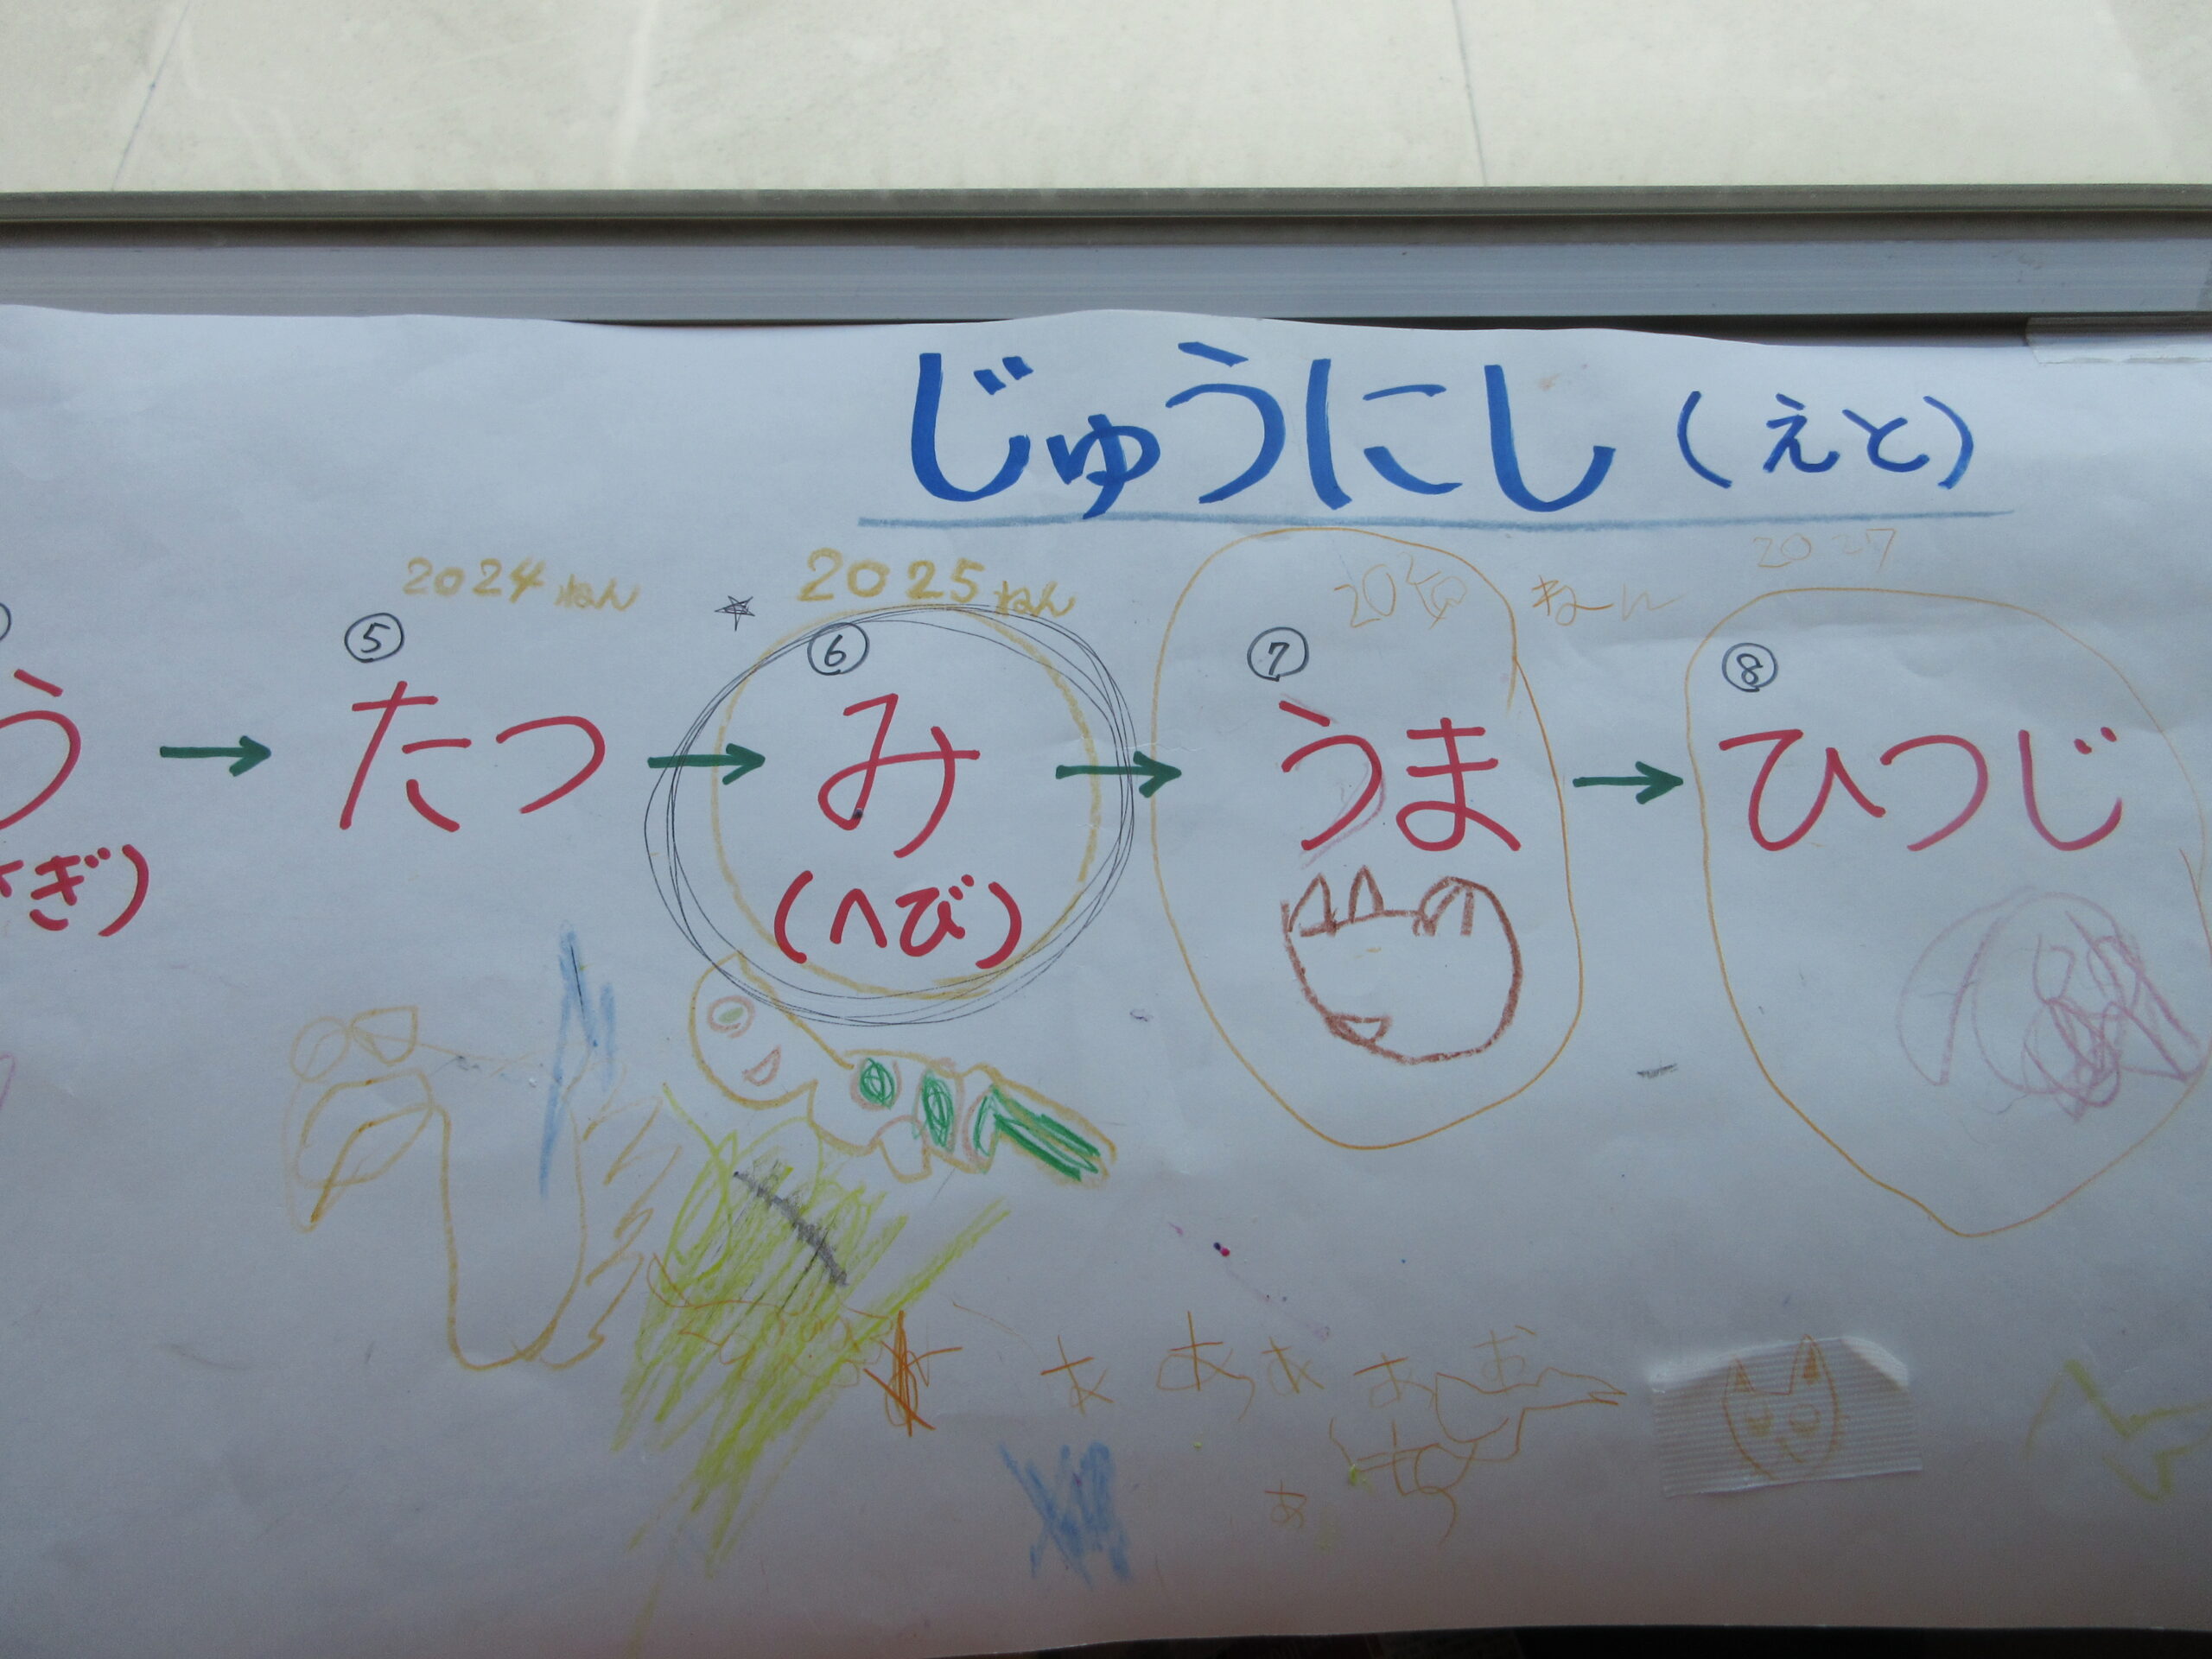 じゅうにし(えと)
2024ねん
☆ 2025ねん
ねん
2027
⑤ ⑥ ⑦ ⑧
う → たつ → み → うま → ひつじ
ぎ)
(へび)
あ
あ あ あ
お
お
あ